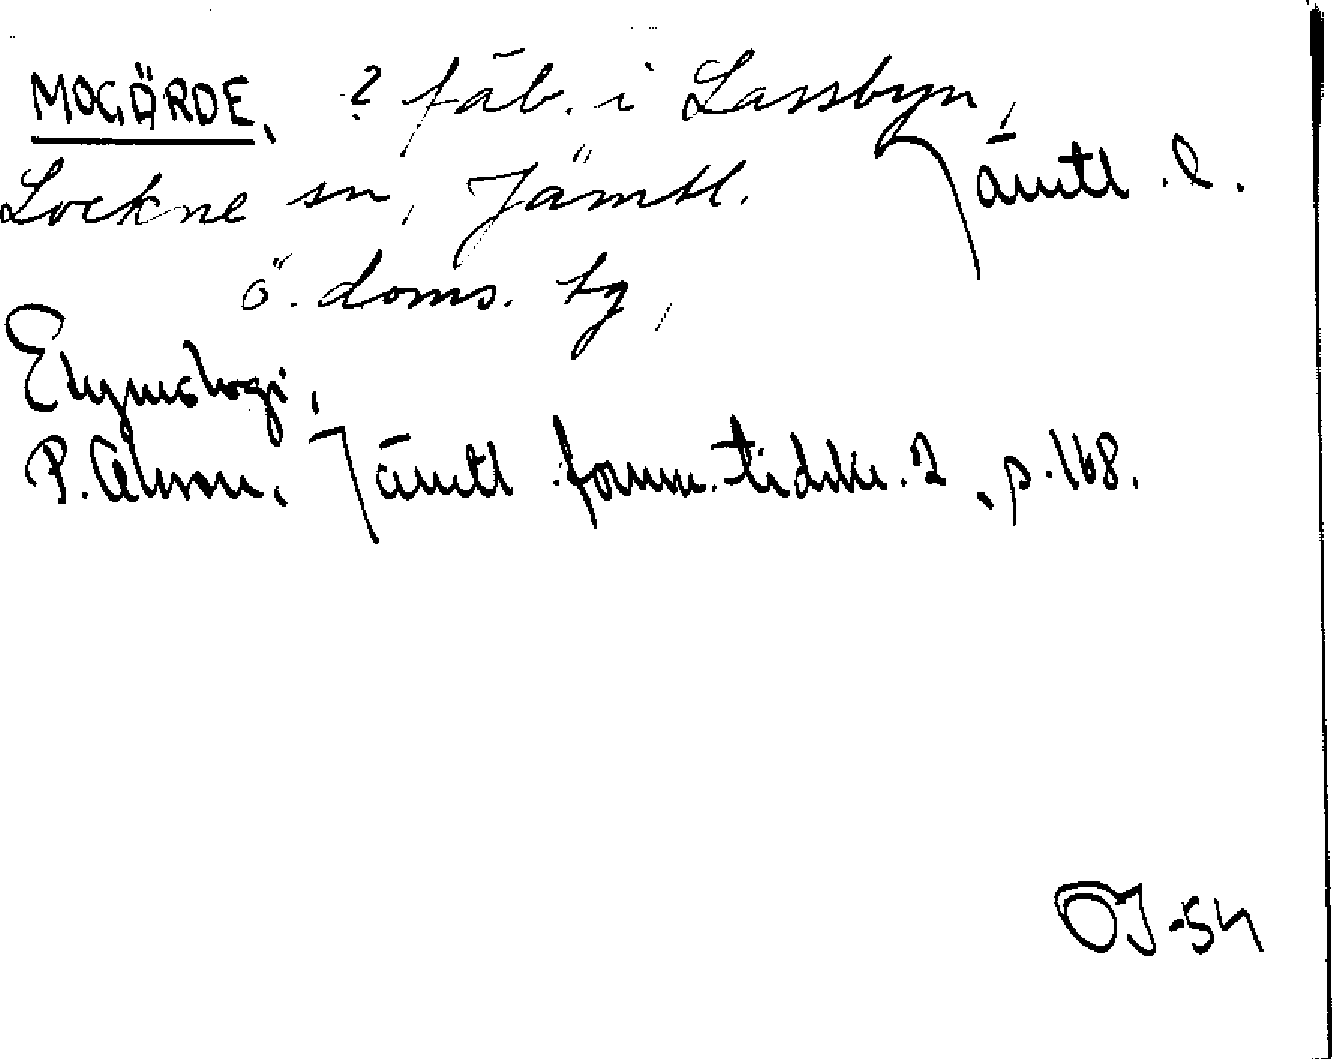 MOGÄRDE, ? fäb. i Lassbyn,
Lockne sn, Jämtl. Jämtl. l.
ö. doms. tg,
Etymologi,
P. Jämtl. fornm. tidskr. 2, p. 168.
OJ-54